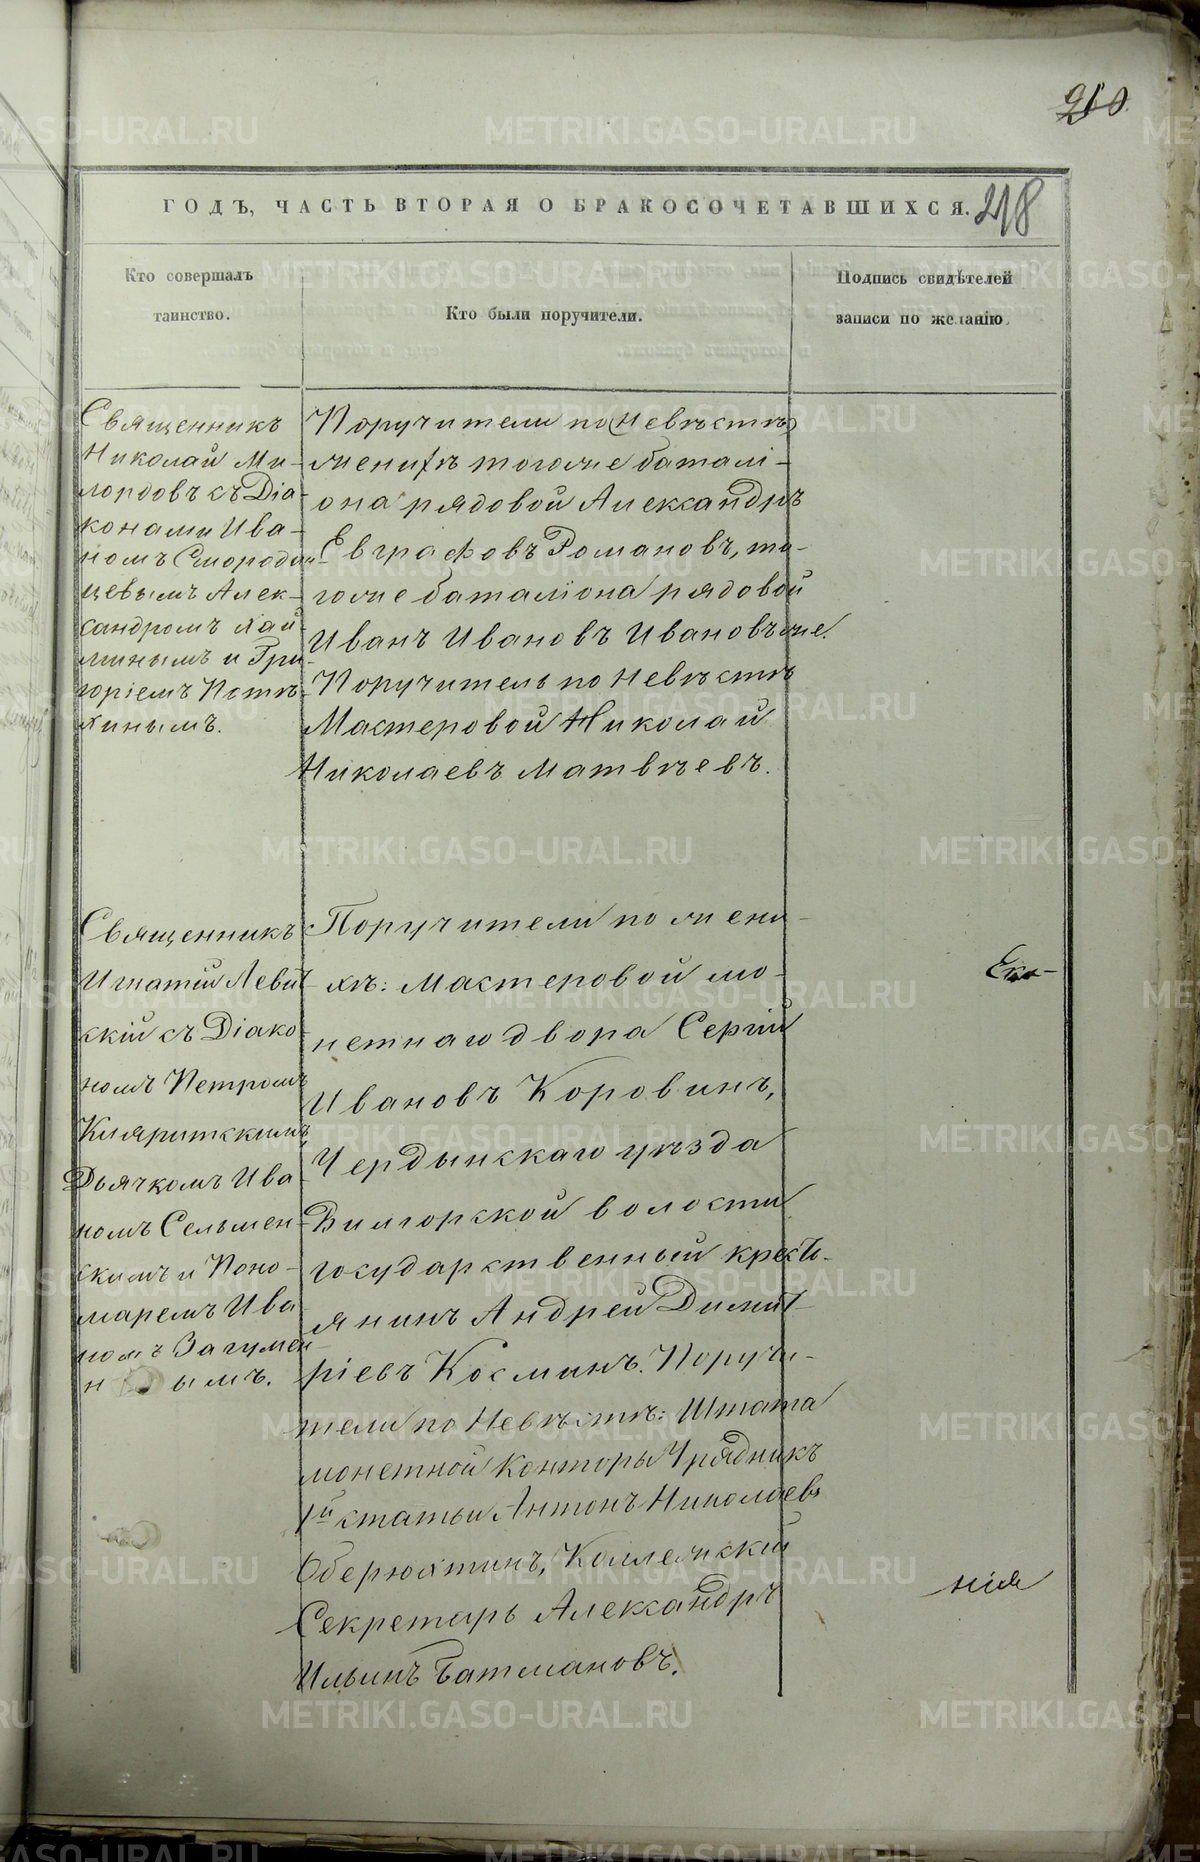 210
ГОДЪ, ЧАСТЬ ВТОРАЯ О БРАКОСОЧЕТАВШИХСЯ.
218
Кто совершалъ
таинство.
Кто были поручители.
Подпись свидѣтелей
записи по желанію.
Священникъ
Николай Ми-
лордовъ съ Діа-
конами Ива-
номъ Смородин-
цевымъ Алек-
сандромъ
и Гри-
горіемъ Пѣту-
хинымъ.
Поручители по (Невѣстѣ)
женихѣ тогоже баталі-
она рядовой Александръ
Евграфовъ Романовъ, то-
гоже баталіона рядовой
Иванъ Ивановъ Ивановъ же.
Поручитель по Невѣстѣ
Мастеровой Николай
Николаевъ Матвѣевъ.
Священникъ
Игнатій Левит-
скій съ Діако-
номъ Петромъ
Кияритскимъ,
Дьячкомъ Ива-
номъ Сельмен-
скимъ и Поно-
маремъ Ива-
номъ Загумен-
нымъ.
Поручители по жени-
хѣ: Мастеровой мо-
нетнаго двора Сергій
Ивановъ Коровинъ,
Чердынскаго уѣзда
Вилгорской волости
государственный кресть-
янинъ Андрей Димит-
ріевъ Косминъ. Поручи-
тели по Невѣстѣ: Штата
монетной Конторы Урядникъ
1й статьи Антонъ Николаевъ
Оберюхтинъ, Коллежскій
Секретарь Александръ
Ильинъ Батмановъ.
Ека-
нія
METRIKI.GASO-URAL.RU